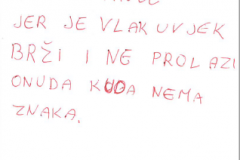 JER JE VLAK UVJEK
BRŽI I NE PROLAZI
ONUDA KUDA NEMA
ZNAKA.